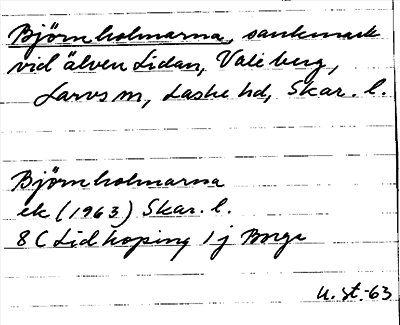 Björnholmarna, sankmark
vid älven Lidan, Vale berg,
Larvs sn, Laske hd, Skar. l.
Björnholmarna
ek (1963) Skar. l.
8 C Lidköping 1 j Borga
U. St. -63